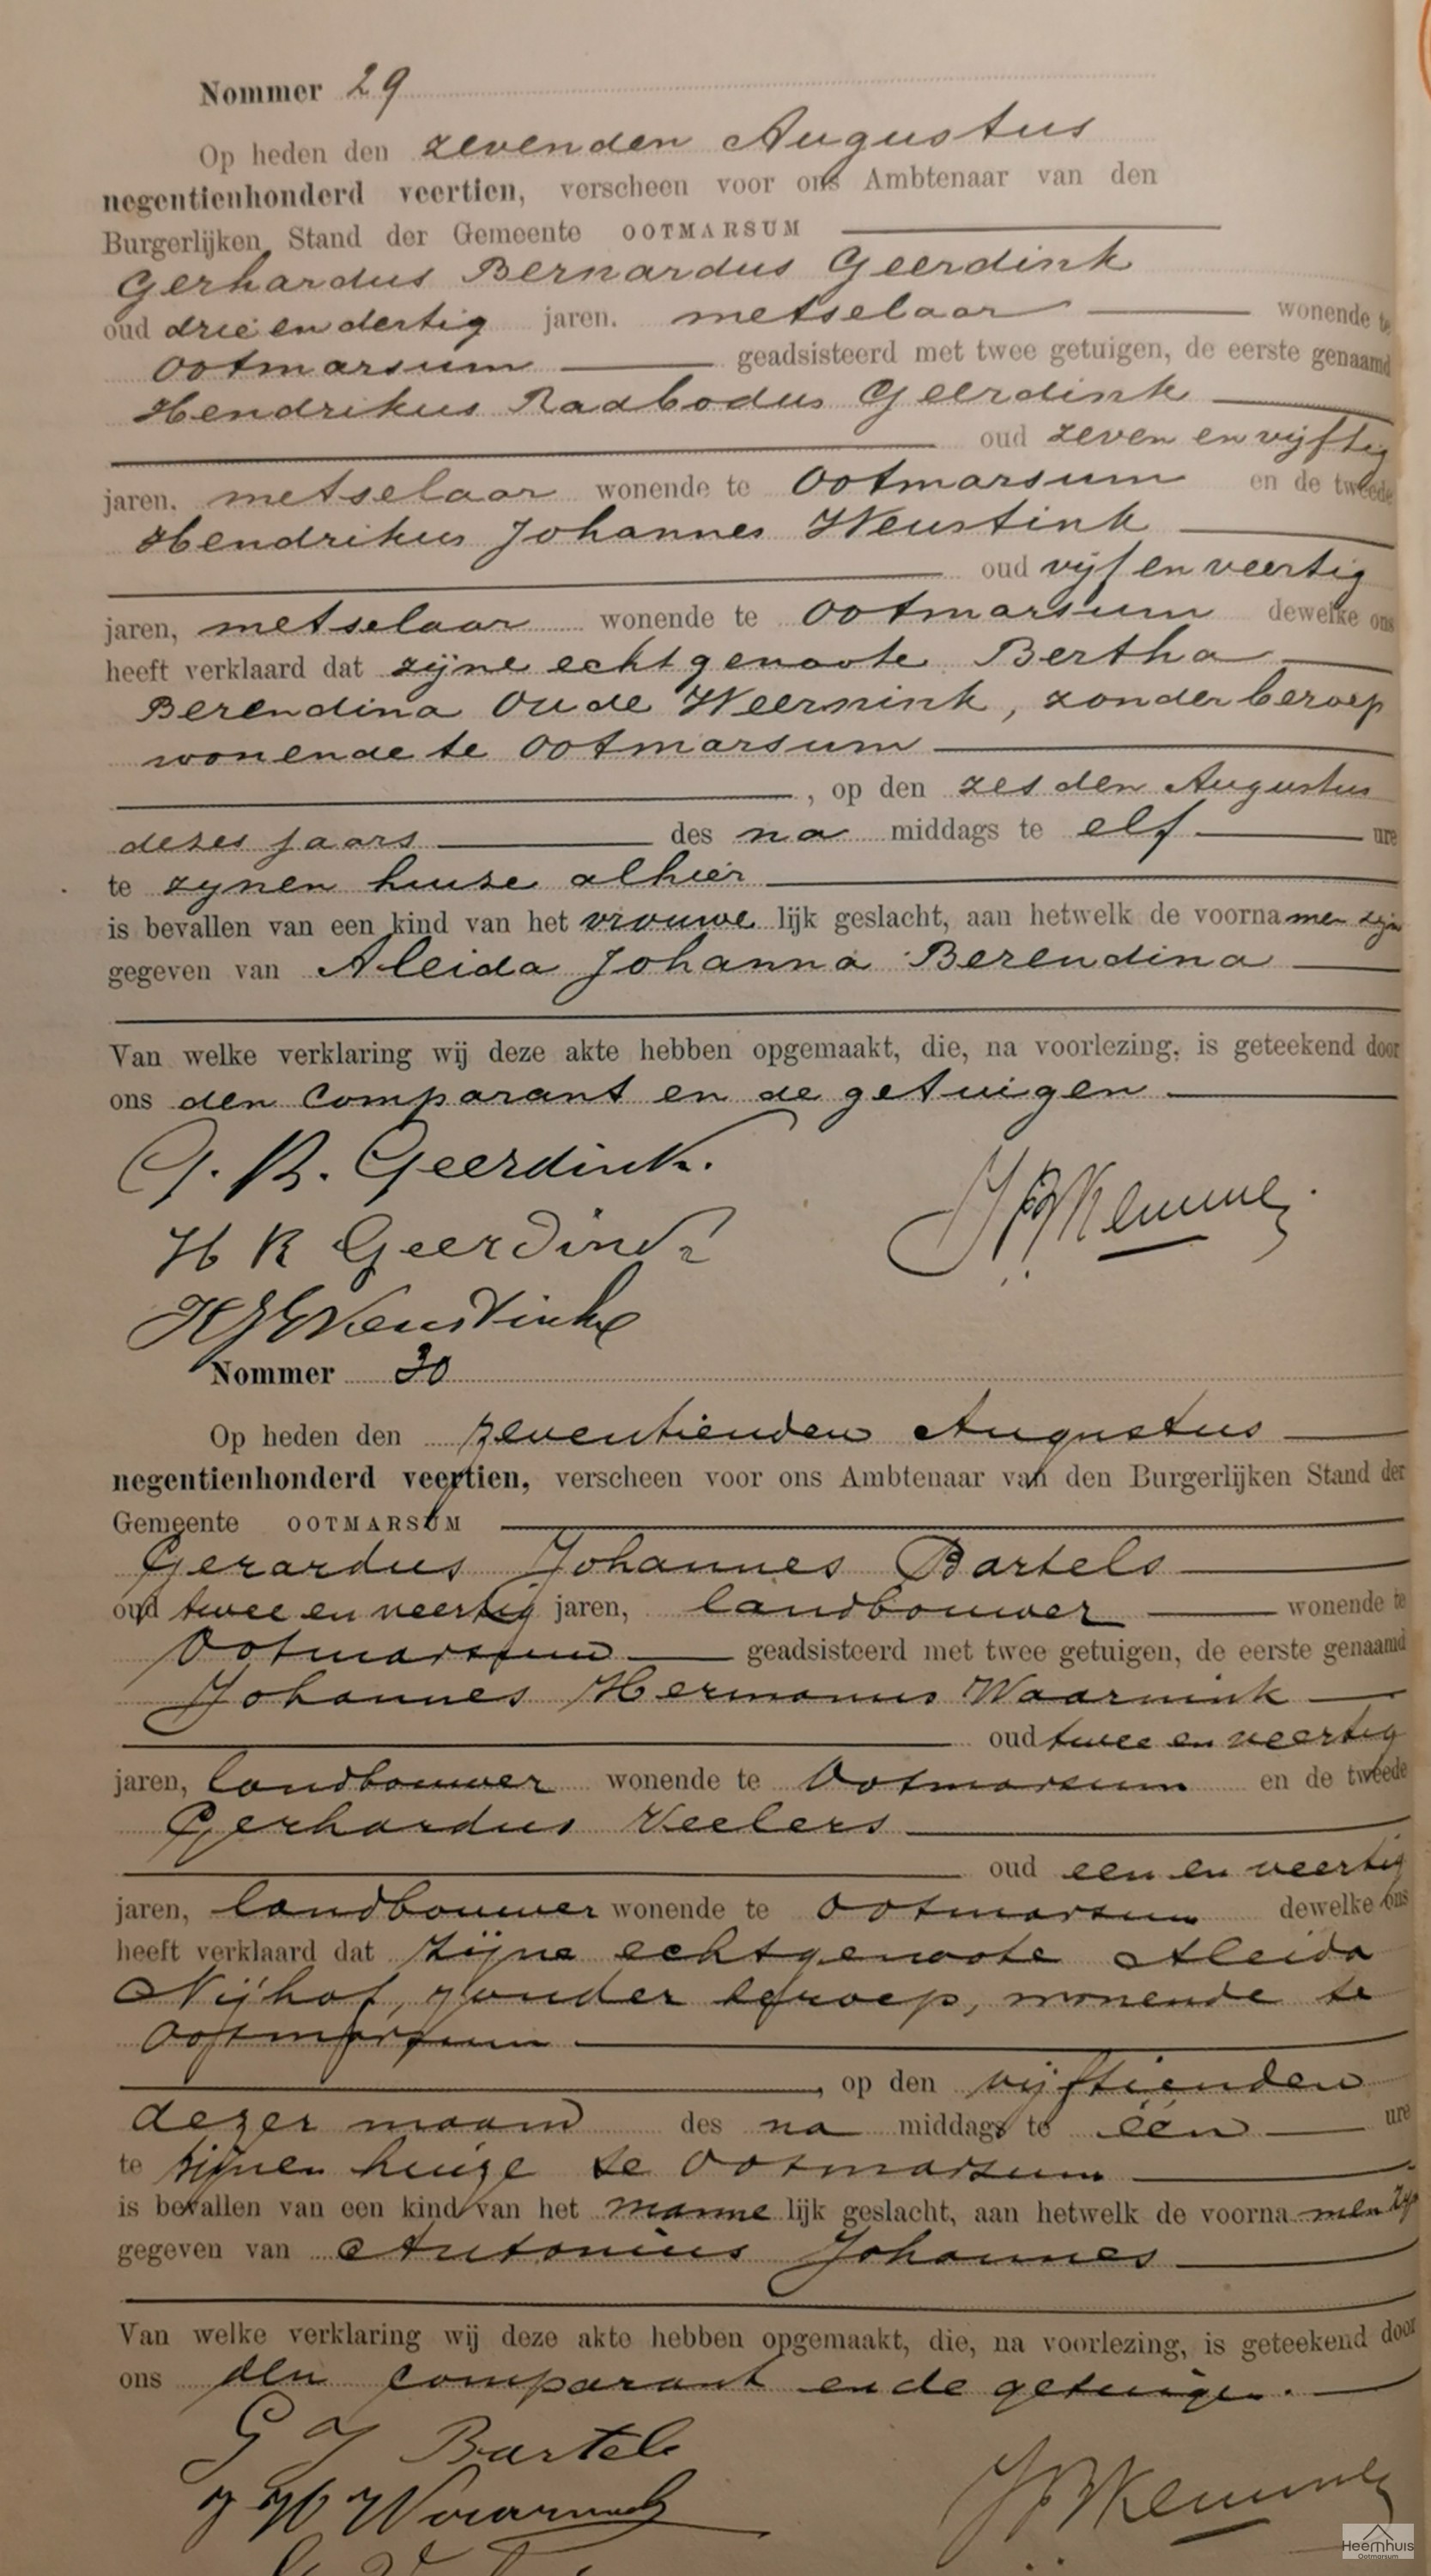 Nommer 29
Op heden den zevenden Augustus
negentienhonderd veertien, verscheen voor ons Ambtenaar van den
Burgerlijken Stand der Gemeente OOTMARSUM
Gerhardus Bernardus Geerdink
oud drie en dertig jaren. metselaar wonende te
Ootmarsum geadsisteerd met twee getuigen, de eerste genaamd
Hendrikus Radbodus Geerdink
oud zeven en vijftig
jaren, metselaar wonende te Ootmarsum en de tweede
Hendrikus Johannes Weustink
oud vijf en veertig
jaren, metselaar wonende te Ootmarsum dewelke ons
heeft verklaard dat zijne echtgenoote Bertha
Berendina Oude Weernink, zonder beroep
wonende te Ootmarsum
, op den zesden Augustus
dezes jaars des na middags te elf ure
te zynen huize alhier
is bevallen van een kind van het vrouwe lijk geslacht, aan hetwelk de voornamen zijn
gegeven van Aleida Johanna Berendina
Van welke verklaring wij deze akte hebben opgemaakt, die, na voorlezing, is geteekend door
ons den comparant en de getuigen
G. B. Geerdink.
H R Geerdink
HJ Weustink
Nommer 30
Op heden den zeventienden Augustus
negentienhonderd veertien, verscheen voor ons Ambtenaar van den Burgerlijken Stand der
Gemeente OOTMARSUM
Gerardus Johannes Bartels
oud twee en veertig jaren, landbouwer wonende te
Ootmarsum geadsisteerd met twee getuigen, de eerste genaamd
Johannes Hermannus Waarnink
oud twee en veertig
jaren, landbouwer wonende te Ootmarsum en de tweede
Gerhardus Veelers
oud een en veertig
jaren, landbouwer wonende te Ootmarsum dewelke ons
heeft verklaard dat zijne echtgenoote Aleida
Nijhof, zonder beroep, wonende te
Ootmarsum
, op den vijftienden
dezer maand des na middags te één ure
te zijnen huize te Ootmarsum
is bevallen van een kind van het manne lijk geslacht, aan hetwelk de voornamen zijn
gegeven van Antonius Johannes
Van welke verklaring wij deze akte hebben opgemaakt, die, na voorlezing, is geteekend door
ons den comparant en de getuigen.
G J Bartels
J H Waarnink
Heemhuis
Ootmarsum